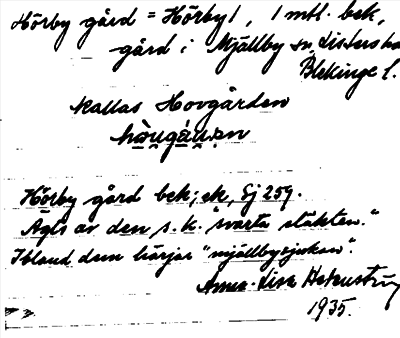 Hörby gård = Hörby 1, 1 mtl. bek,
gård i Mjällby sn, Listers ha
Blekinge l.
Kallas Hovgården
Hörby gård bek; ek, Ej 259.
Ägts av den s.k. "svarta släkten."
Ibland dem börjar "mjällbysjukan".
Anna-Lisa
1935.